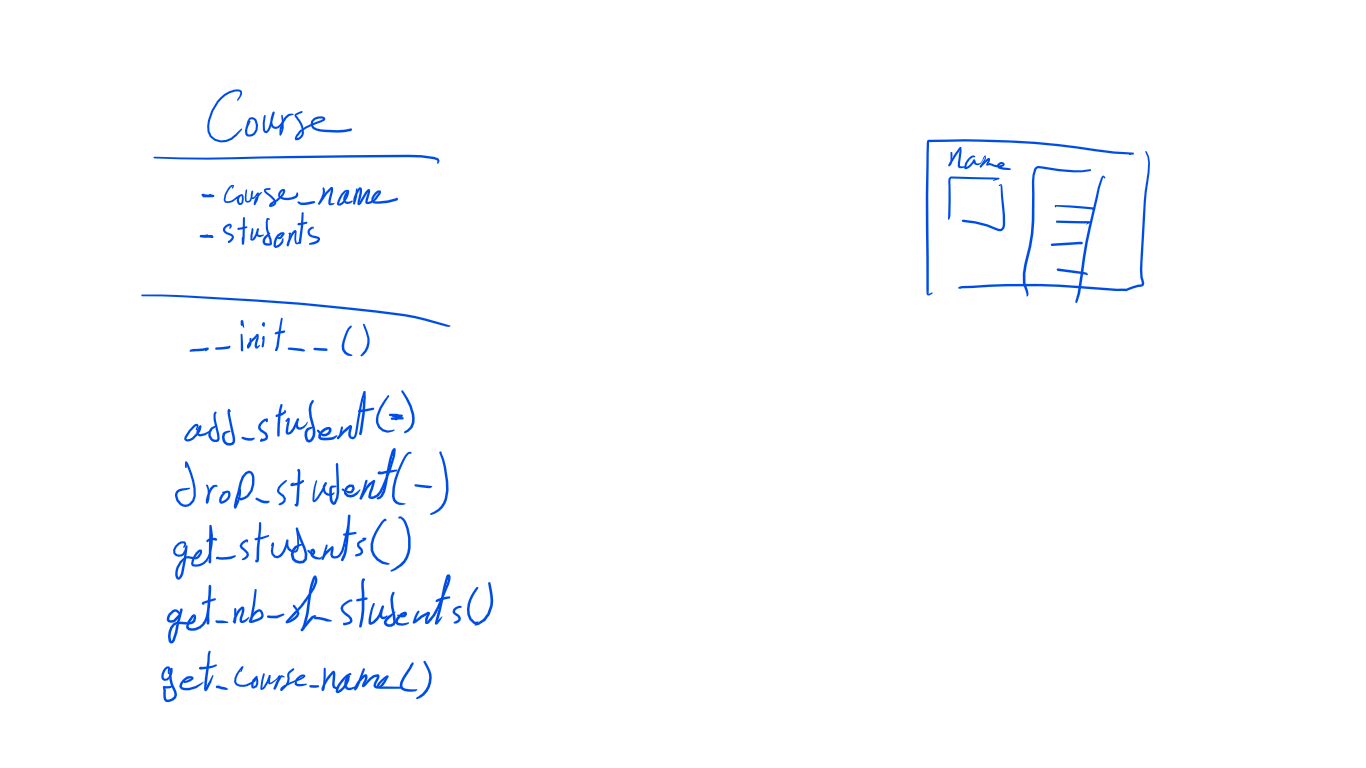 Course
- course_name
- students
__init__()
add_student(-)
drop_student(-)
get_students()
get_nb_of_students()
get_course_name()
Name